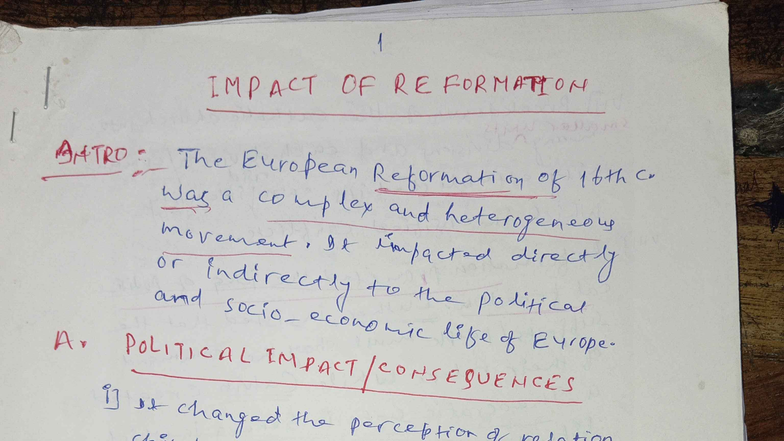 1
IMPACT OF REFORMATION
INTRO :- The European Reformation of 16th C.
was a complex and heterogeneous
movement. It impacted directly
or indirectly to the political
and socio-economic life of Europe.
A. POLITICAL IMPACT/CONSEQUENCES
i] It changed the perception of relation